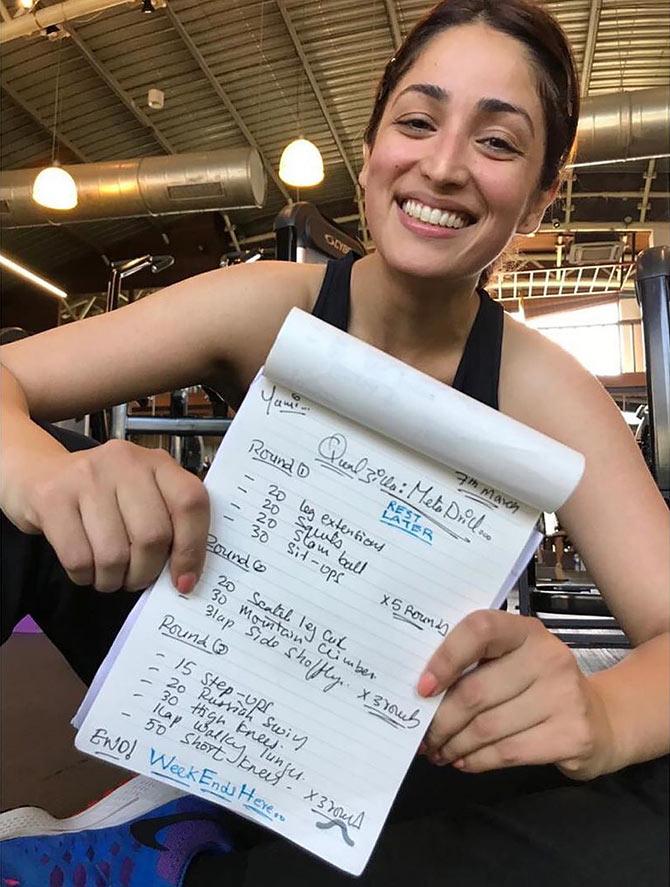 Yami...
7th March
Quadzilla: Meta Drill...
REST
LATER
Round ①
- 20 leg extensions
- 20 Squats
- 20 Slam ball
- 30 Sit-ups
x 5 rounds
Round ②
20 Seated leg curl
30 Mountain climber
3lap Side Shoffly.
x 3 rounds
Round ③
- 15 Step-ups
- 20 Russian Swing
- 30 High Knees.
- 1lap Walky lunges.
- 50 Short Knees.
x 3 round
END!
Week Ends Here..